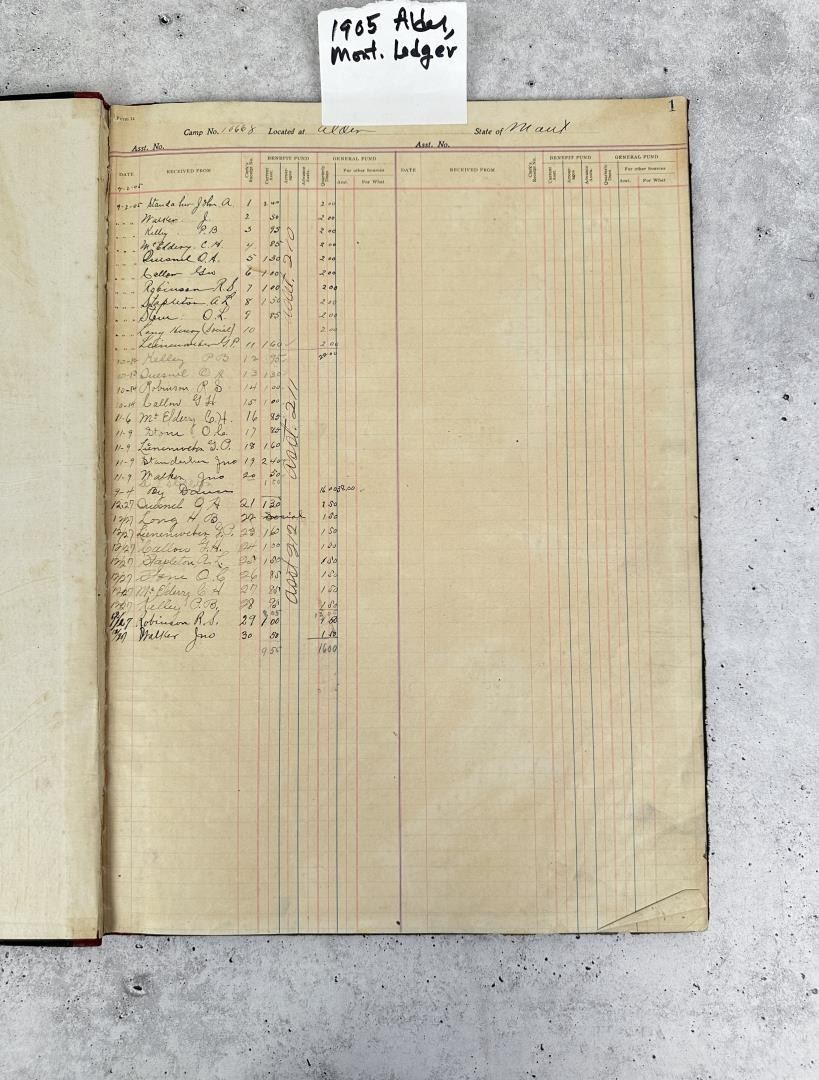 1905 Alder,
Mont. Ledger
1
Form 14
Camp No. 10668 Located at Alder State of Mont
Asst. No. Asst. No.
DATE RECEIVED FROM Clerk's Receipt No. BENEFIT FUND Current Asst. Arrear-ages Advance Assts. GENERAL FUND Quarterly Dues For other Sources Amt. For What
DATE RECEIVED FROM Clerk's Receipt No. BENEFIT FUND Current Asst. Arrear-ages Advance Assts. GENERAL FUND Quarterly Dues For other Sources Amt. For What
9-2-05
9-2-05 John A. 1 2 40 2 00
" " Walker J. 2 50 2 00
" " Kelly P.B 3 95 2 00
" " McEldery C.H. 4 85 2 00
" " Quesnel O.A. 5 1 30 2 00
" " Callow Geo 6 1 00 2 00
" " Robinson R.S. 7 1 00 2 00
" " Stapleton A.L. 8 1 50 2 00
" " Stone O.C. 9 85 2 00
" " Long Henry (Social) 10 2 00
" " Lienenweber G.P. 11 1 60 2 00
10-14 Kelley P B 12 95 22 00
10-13 Quesnel O A 13 1 30
10-14 Robinson R S 14 1 00
10-14 Callow G H 15 1 00
11-6 McEldery C.H. 16 85
11-9 Stone O.C. 17 85
11-9 Lienenweber G.P. 18 1 60
11-9 Jno 19 2 40
11-9 Walker Jno 20 50
9-4 By
12/27 Quesnel O A 21 1 30 1 50
12/27 Long H B 22 Social 1 50
12/27 Lienenweber G.P. 23 1 60 1 50
12/27 Callow G.H. 24 1 00 1 50
12/27 Stapleton A.L. 25 1 50 1 50
12/27 Stone O.C 26 85 1 50
12/27 McEldery C H 27 85 1 50
12/27 Kelley P.B. 28 95 1 50
12/27 Robinson R.S. 29 1 00 1 50
12/27 Walker Jno 30 50 1 50
9 55 16 00
asst. 210
asst. 211
asst 212